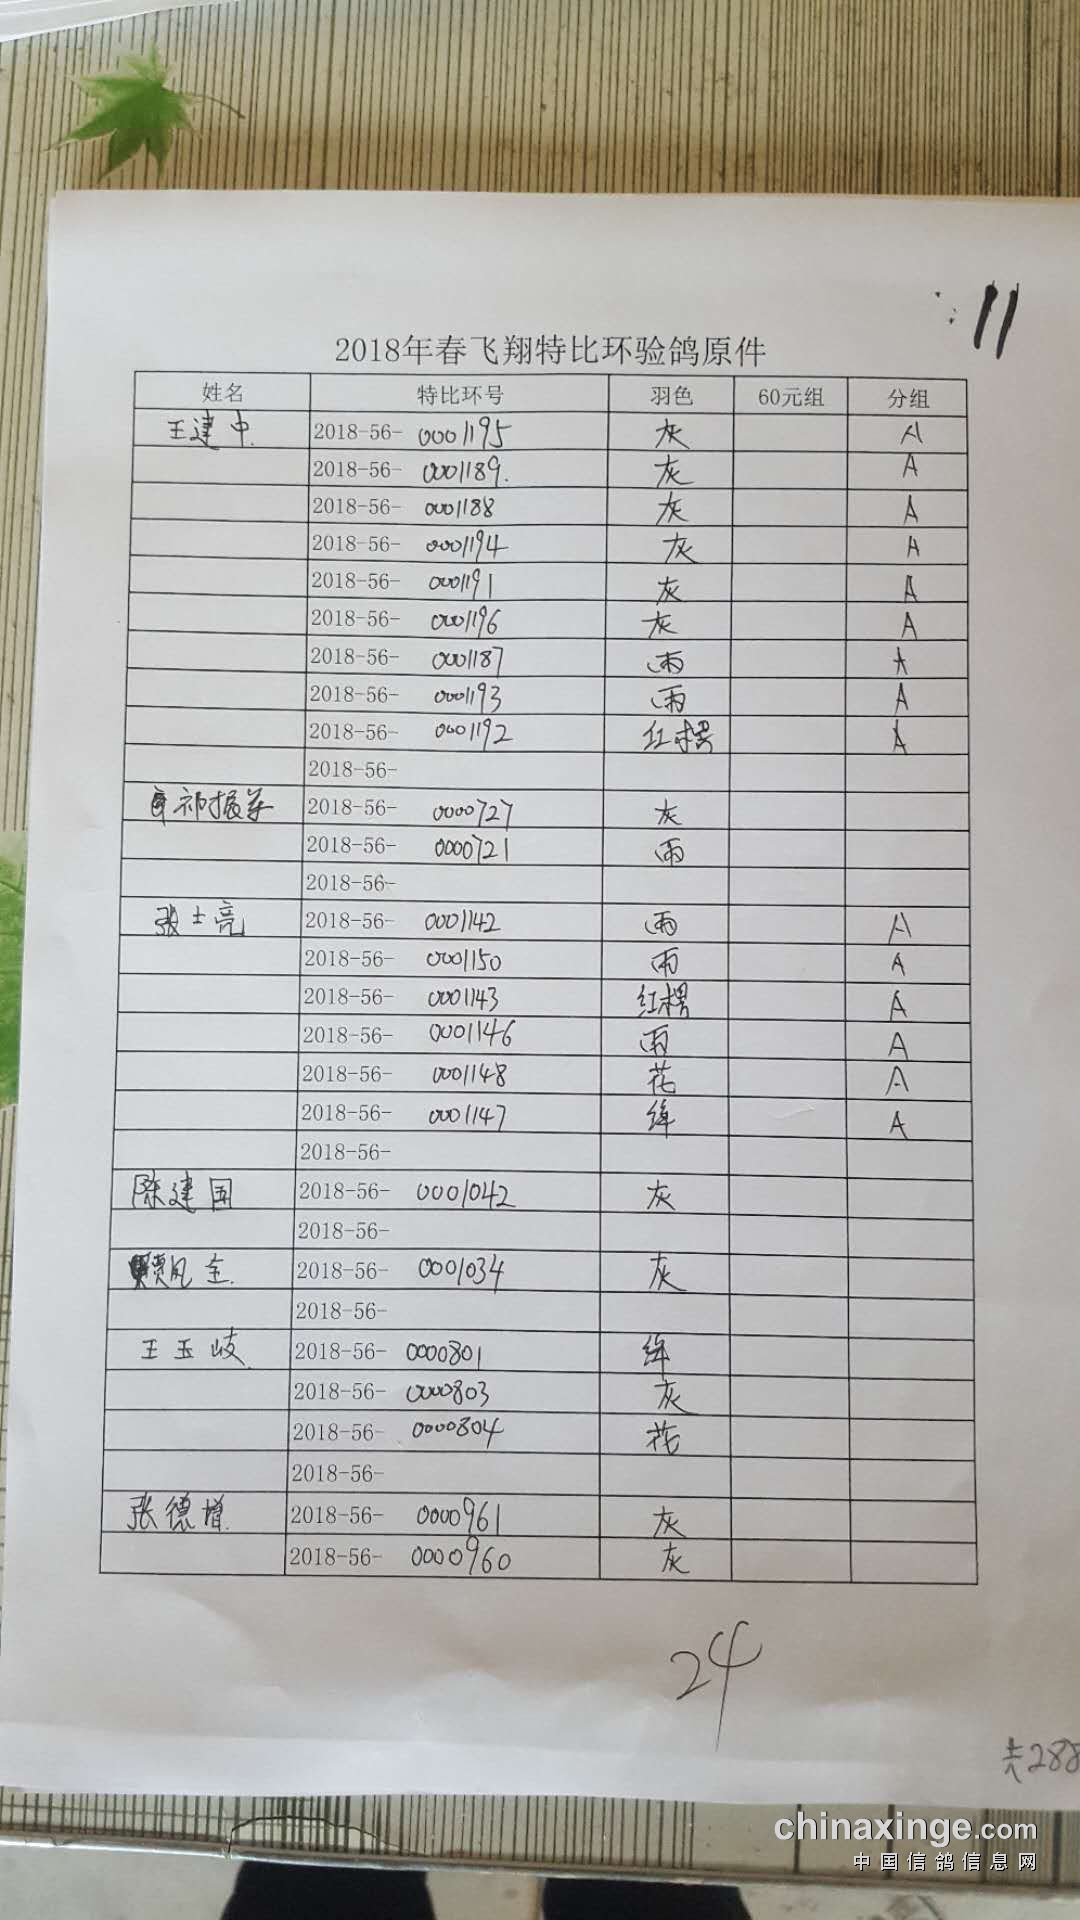 11
2018年春飞翔特比环验鸽原件
姓名 特比环号 羽色 60元组 分组
王建中 2018-56- 0001195 灰 A
2018-56- 0001189. 灰 A
2018-56- 0001188 灰 A
2018-56- 0001194 灰 A
2018-56- 0001191 灰 A
2018-56- 0001196 灰 A
2018-56- 0001187 雨 A
2018-56- 0001193 雨 A
2018-56- 0001192 红楞 A
2018-56-
祁振 2018-56- 0000727 灰
2018-56- 0000721 雨
2018-56-
张士亮 2018-56- 0001142 雨 A
2018-56- 0001150 雨 A
2018-56- 0001143 红楞 A
2018-56- 0001146 雨 A
2018-56- 0001148 花 A
2018-56- 0001147 绛 A
2018-56-
陈建国 2018-56- 0001042 灰
2018-56-
凤全 2018-56- 0001034 灰
2018-56-
王玉岐 2018-56- 0000801 绛
2018-56- 0000803 灰
2018-56- 0000804 花
2018-56-
张德增 2018-56- 0000961 灰
2018-56- 0000960 灰
24
共288
chinaxinge.com
中国信鸽信息网